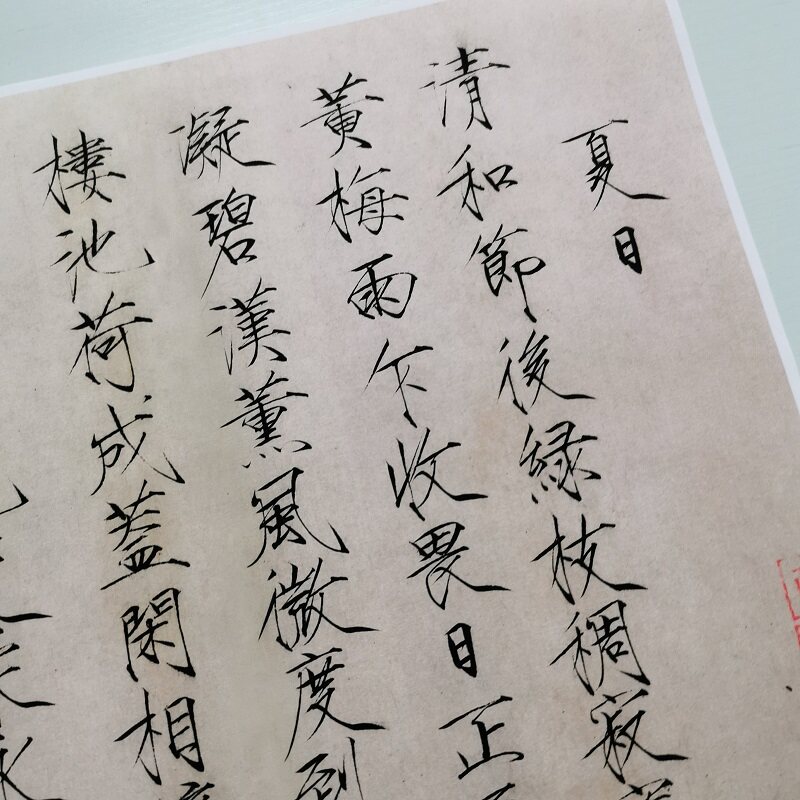 夏日
清和節後緑枝稠寂
黄梅雨乍收畏日正
凝碧漢薰風微度到
樓池荷成蓋閑相